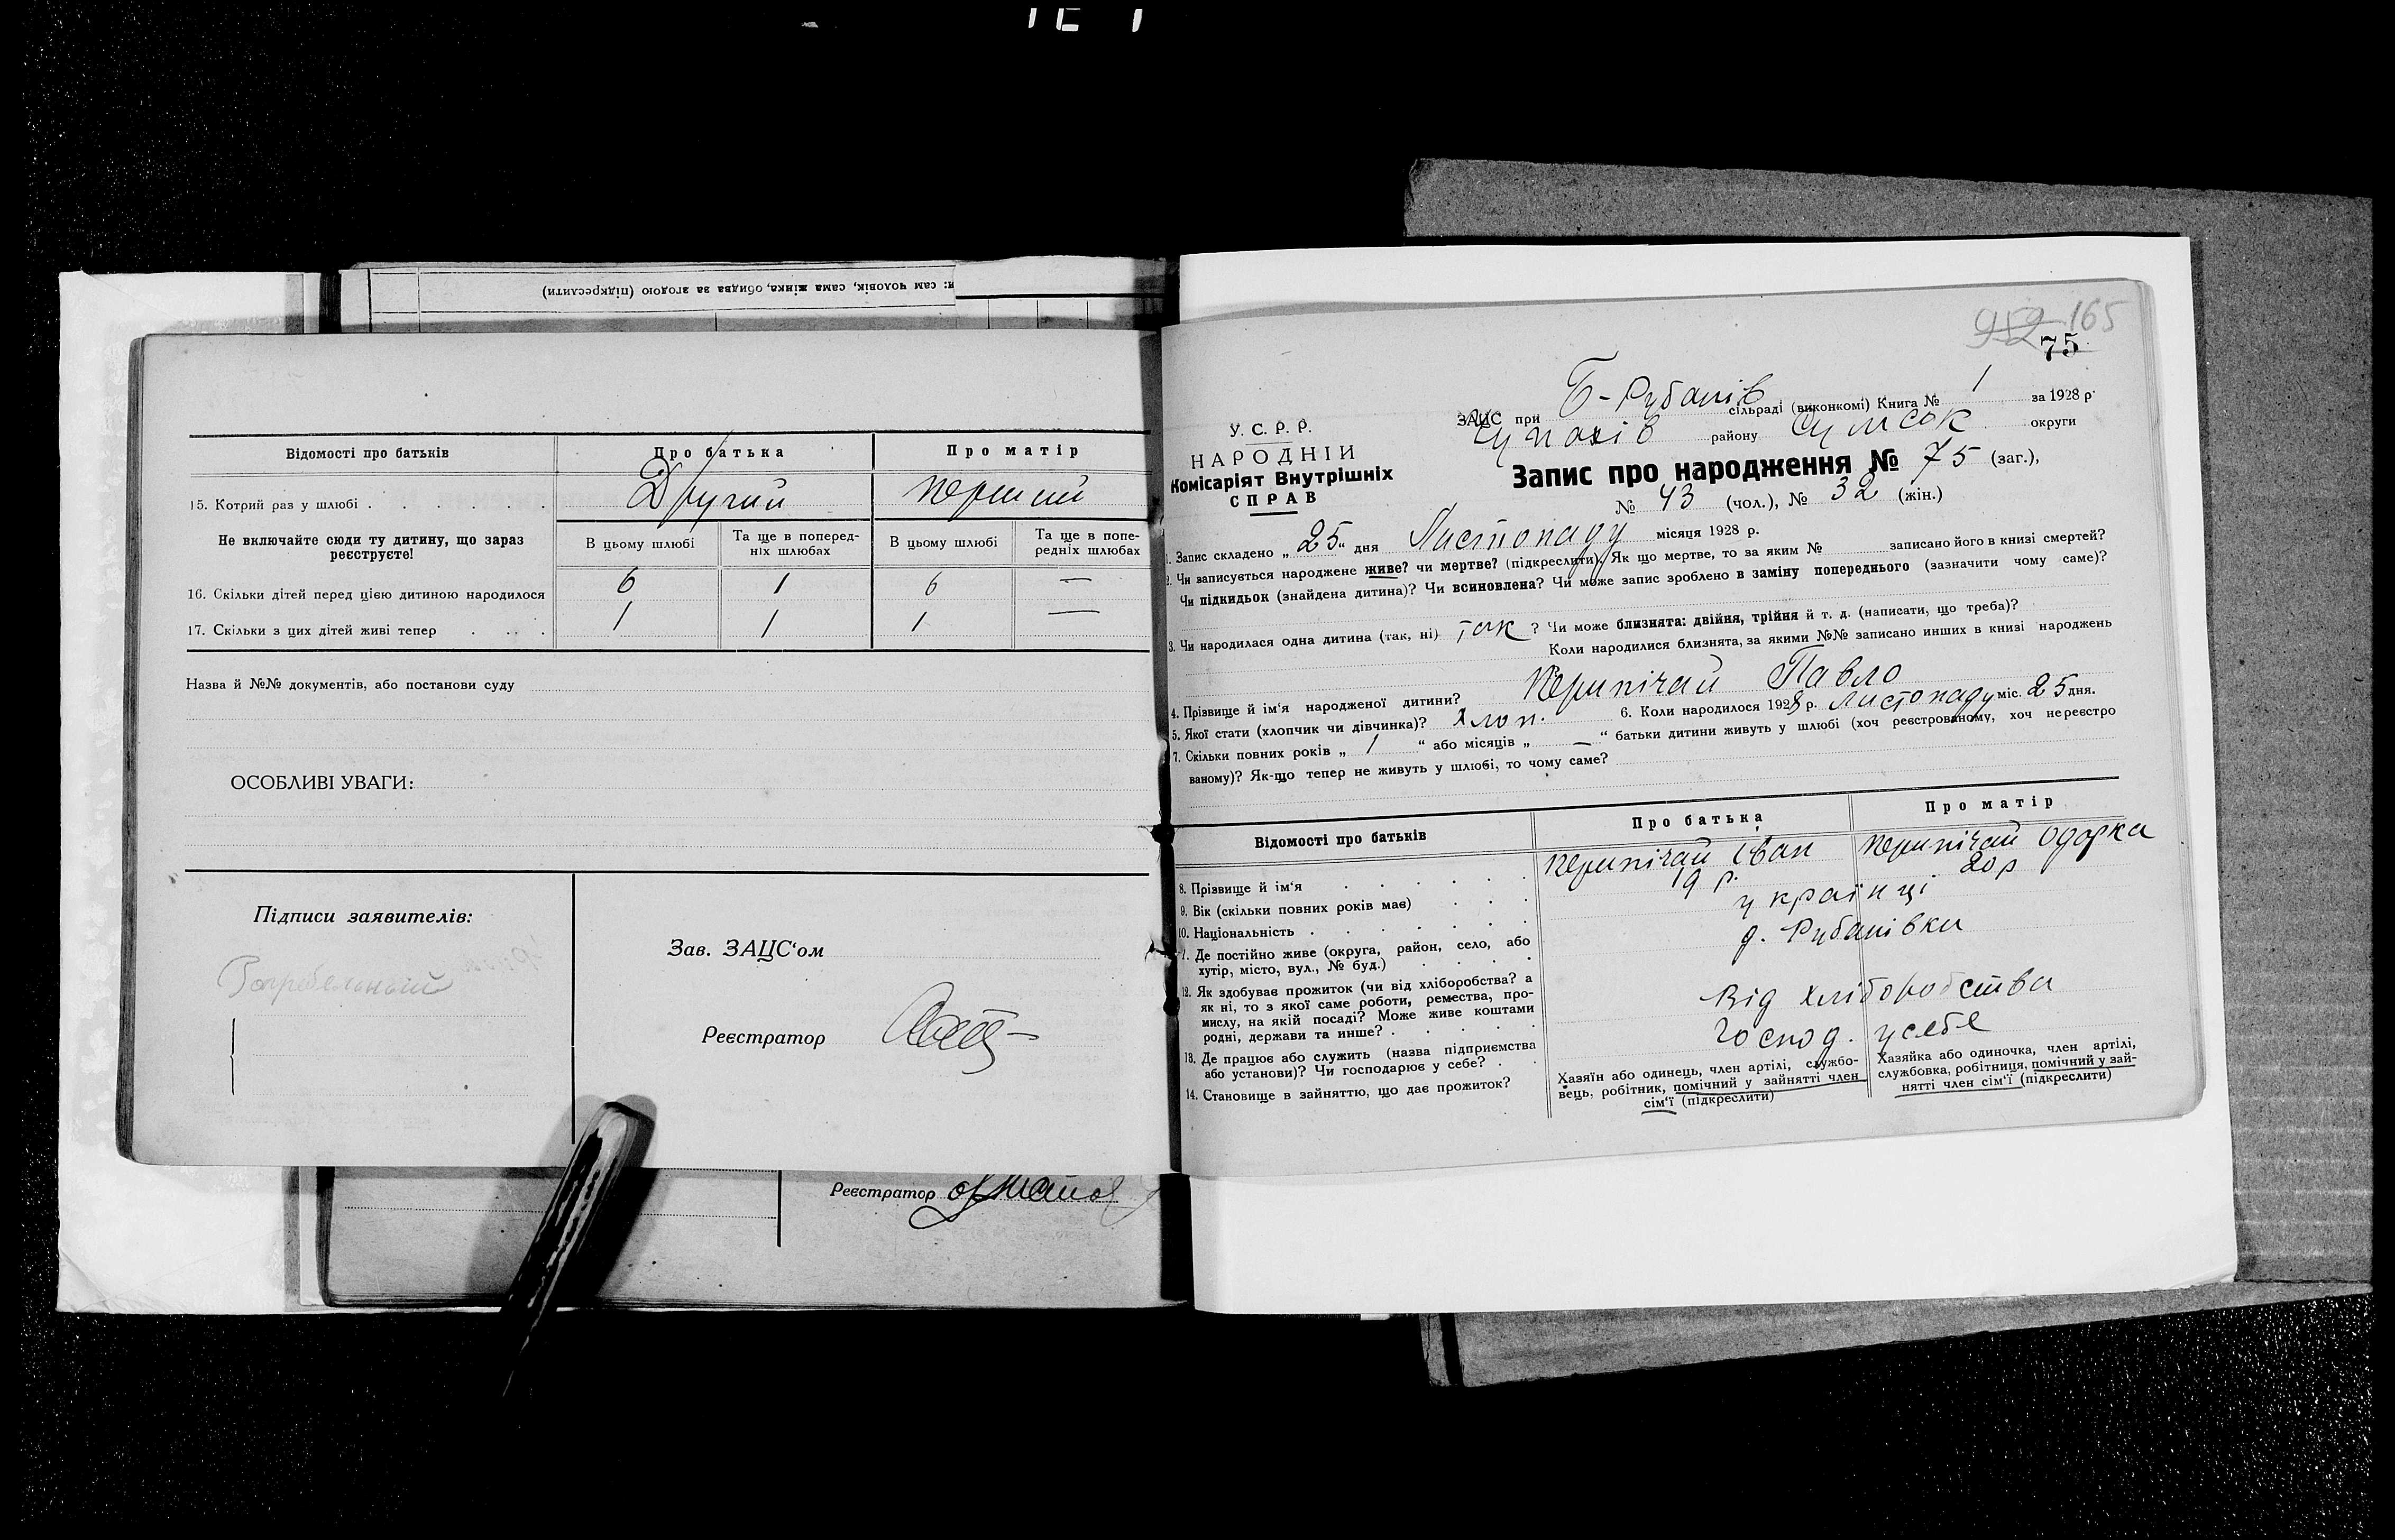 (підкреслити) сам чоловік, сама жінка, обидва за згодою
Відомості про батьків
Про батька
Про матір
15. Котрий раз у шлюбі
Другий
перший
Не включайте сюди ту дитину, що зараз
реєструєте!
В цьому шлюбі
Та ще в поперед-
ніх шлюбах
В цьому шлюбі
Та ще в попе-
редніх шлюбах
16. Скільки дітей перед цією дитиною народилося
6 1 6 —
17. Скільки з цих дітей живі тепер
1 1 1 —
Назва й №№ документів, або постанови суду
ОСОБЛИВІ УВАГИ:
Підписи заявителів:
Зав. ЗАЦС'ом
Реєстратор
Реєстратор
952 165
75
У. С. Р. Р.
НАРОДНІЙ
Комісаріят Внутрішніх
СПРАВ
ЗАЦС при Б-Рубанів сільраді (виконкомі) Книга № 1 за 1928 р.
району Сумсок округи
Запис про народження № 75 (заг.),
№ 43 (чол.), № 32 (жін.)
1. Запис складено „ 25 " дня Листопаду місяця 1928 р.
2. Чи записується народжене живе? чи мертве? (підкреслити). Як що мертве, то за яким № записано його в книзі смертей?
Чи підкидьок (знайдена дитина)? Чи всиновлена? Чи може запис зроблено в заміну попереднього (зазначити чому саме)?
3. Чи народилася одна дитина (так, ні) так ? Чи може близнята: двійня, трійня й т. д. (написати, що треба)?
Коли народилися близнята, за якими №№ записано инших в книзі народжень
4. Прізвище й ім'я народженої дитини? Перипічай Павло
5. Якої стати (хлопчик чи дівчинка)? хлоп. 6. Коли народилося 1928 р. Листопаду міс. 25 дня.
7. Скільки повних років „ 1 " або місяців „ — " батьки дитини живуть у шлюбі (хоч реєстрованому, хоч нереєстро
ваному)? Як-що тепер не живуть у шлюбі, то чому саме?
Відомості про батьків
Про батька
Про матір
8. Прізвище й ім'я
Перипічай Іван
Перипічай Одорка
9. Вік (скільки повних років має)
19 р.
20 р
10. Національність
українці
11. Де постійно живе (округа, район, село, або
хутір, місто, вул., № буд.)
д. Рубанівка
12. Як здобуває прожиток (чи від хліборобства? а
як ні, то з якої саме роботи, ремества, про-
мислу, на якій посаді? Може живе коштами
родні, держави та инше?
Від хліборобства
13. Де працює або служить (назва підприємства
або установи)? Чи господарює у себе?
Господ. у себе
14. Становище в зайняттю, що дає прожиток?
Хазяїн або одинець, член артілі, службо-
вець, робітник, помічний у зайнятті член
сім'ї (підкреслити)
Хазяйка або одиночка, член артілі,
службовка, робітниця, помічний у зай-
нятті член сім'ї (підкреслити)